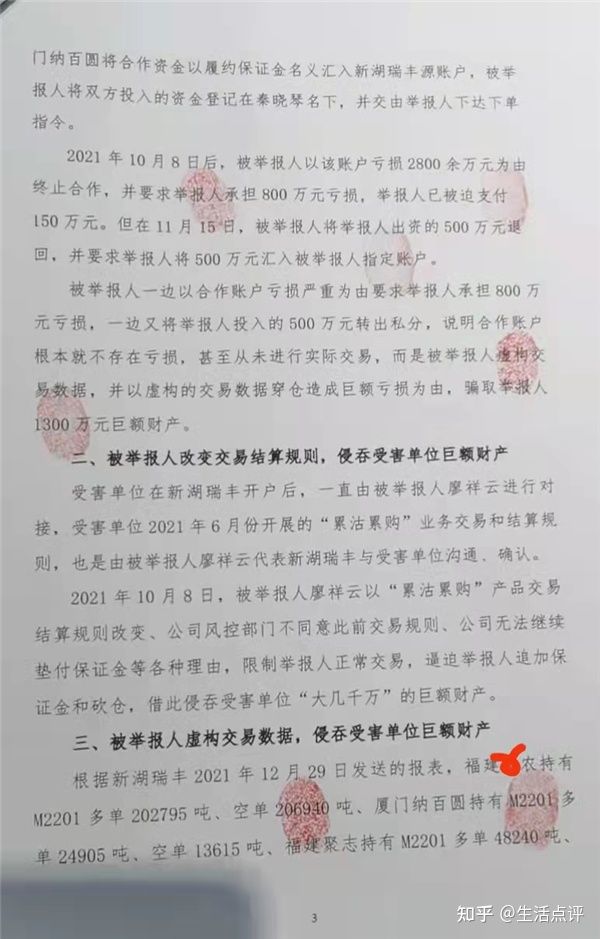 门纳百圆将合作资金以履约保证金名义汇入新湖瑞丰源账户，被举
报人将双方投入的资金登记在秦晓琴名下，并交由举报人下达下单
指令。
2021 年 10 月 8 日后，被举报人以该账户亏损 2800 余万元为由
终止合作，并要求举报人承担 800 万元亏损，举报人已被迫支付
150 万元。但在 11 月 15 日，被举报人将举报人出资的 500 万元退
回，并要求举报人将 500 万元汇入被举报人指定账户。
被举报人一边以合作账户亏损严重为由要求举报人承担 800 万
元亏损，一边又将举报人投入的 500 万元转出私分，说明合作账户
根本就不存在亏损，甚至从未进行实际交易，而是被举报人虚构交
易数据，并以虚构的交易数据穿仓造成巨额亏损为由，骗取举报人
1300 万元巨额财产。
二、被举报人改变交易结算规则，侵吞受害单位巨额财产
受害单位在新湖瑞丰开户后，一直由被举报人廖祥云进行对
接，受害单位 2021 年 6 月份开展的“累沽累购”业务交易和结算规
则，也是由被举报人廖祥云代表新湖瑞丰与受害单位沟通、确认。
2021 年 10 月 8 日，被举报人廖祥云以“累沽累购”产品交易
结算规则改变、公司风控部门不同意此前交易规则、公司无法继续
垫付保证金等各种理由，限制举报人正常交易，逼迫举报人追加保
证金和砍仓，借此侵吞受害单位“大几千万”的巨额财产。
三、被举报人虚构交易数据，侵吞受害单位巨额财产
根据新湖瑞丰 2021 年 12 月 29 日发送的报表，福建农持有
M2201 多单 202795 吨、空单 206940 吨、厦门纳百圆持有 M2201 多
单 24905 吨、空单 13615 吨、福建聚志持有 M2201 多单 48240 吨、
3
知乎 @生活点评